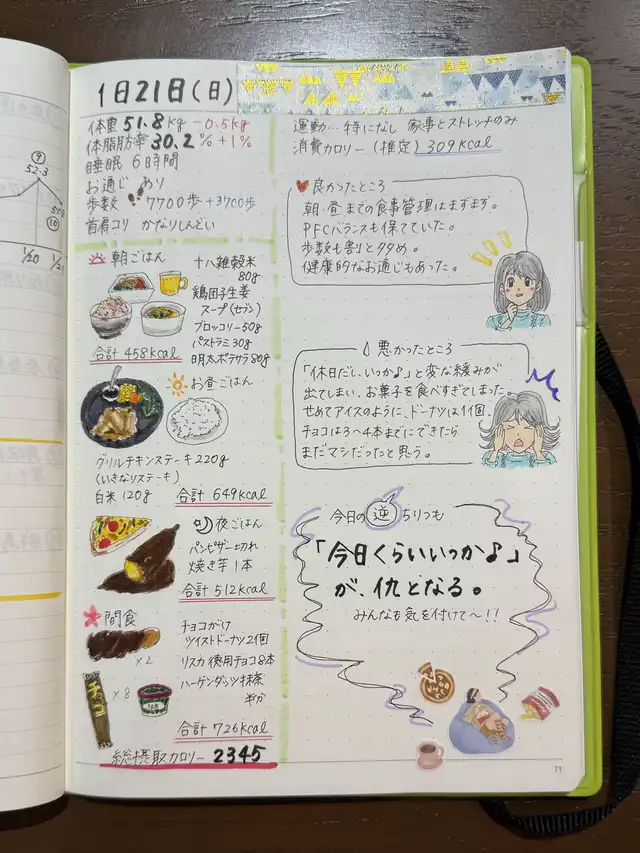 1日21日(日)
体重 51.8kg -0.5kg
体脂肪率 30.2% +1%
睡眠 6時間
お通じ あり
歩数 7700歩 +3700歩
首肩コリ かなりしんどい
朝ごはん
十八雑穀米
80g
鶏団子生姜
スープ(セブン)
ブロッコリー50g
パストラミ30g
明太ポテサラ80g
合計 458kcal
お昼ごはん
グリルチキンステーキ220g
(いきなりステーキ)
白米120g
合計 649kcal
夜ごはん
パンピザ一切れ
焼き芋1本
合計 512kcal
間食
チョコがけ
ツイストドーナツ2個
×2
リスカ徳用チョコ8本
ハーゲンダッツ抹茶
チョコ
×8
合計 726kcal
総摂取カロリー 2345
運動…特になし 家事とストレッチのみ
消費カロリー(推定) 309kcal
良かったところ
朝・昼までの食事管理はまずまず。
PFCバランスも保てていた。
歩数も割と多め。
健康的なお通じもあった。
悪かったところ
「休日だし、いっか♪」と変な緩みが
出てしまい、お菓子を食べすぎてしまった。
せめてアイスのように、ドーナツは1個。
チョコは3〜4本までにできたら
まだマシだったと思う。
今日の逆ちりつも
「今日くらいいっか♪」
が、仇となる。
みんなも気を付けて〜!!
71
⑨
52.3
⑩
1/20
1/21